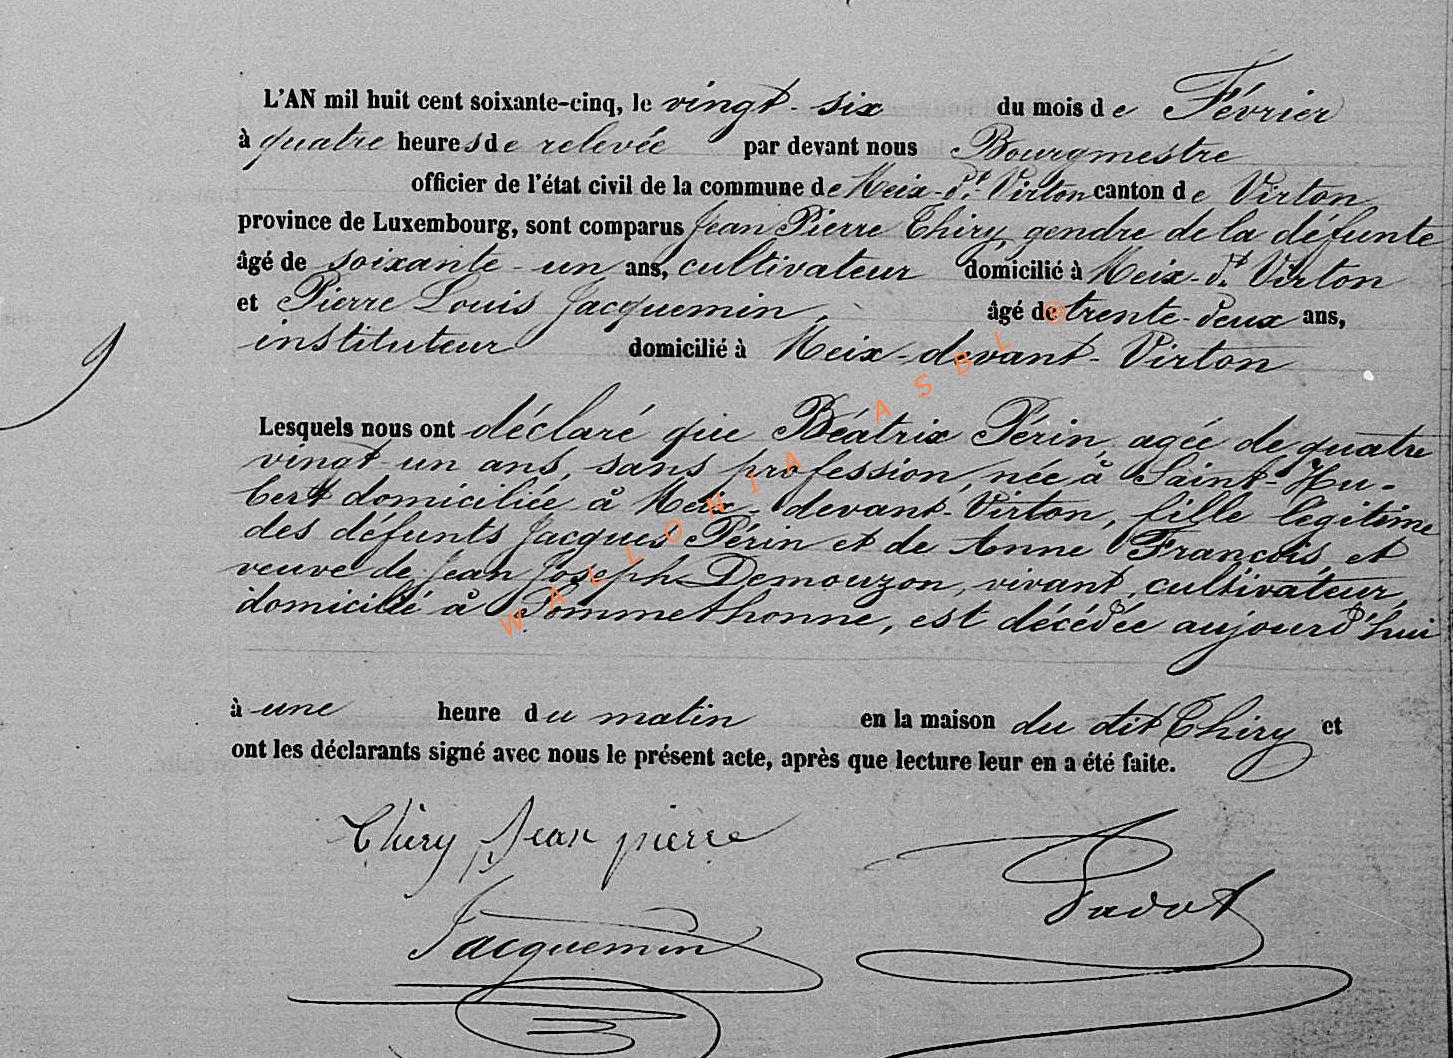 L'AN mil huit cent soixante-cinq, le vingt-six du mois de Février
à quatre heures de relevée par devant nous Bourgmestre
officier de l'état civil de la commune de Meix-dt. Virton canton de Virton
province de Luxembourg, sont comparus Jean Pierre Thiry, gendre de la défunte
âgé de soixante-un ans, cultivateur domicilié à Meix-dt. Virton
et Pierre Louis Jacquemin, âgé de trente-deux ans,
instituteur domicilié à Meix-devant-Virton
Lesquels nous ont déclaré que Béatrix Périn, agée de quatre
vingt-un ans, sans profession, née à Saint-Hu-
bert domiciliée à Meix-devant-Virton, fille légitime
des défunts Jacques Périn et de Anne François, et
veuve de Jean Joseph Demouzon, vivant, cultivateur,
domicilié à Pommethonne, est décédée aujourd'hui
à une heure du matin en la maison du dit Thiry et
ont les déclarants signé avec nous le présent acte, après que lecture leur en a été faite.
Thiry Jean pierre
Jacquemin
WALLONIA ASBL ®